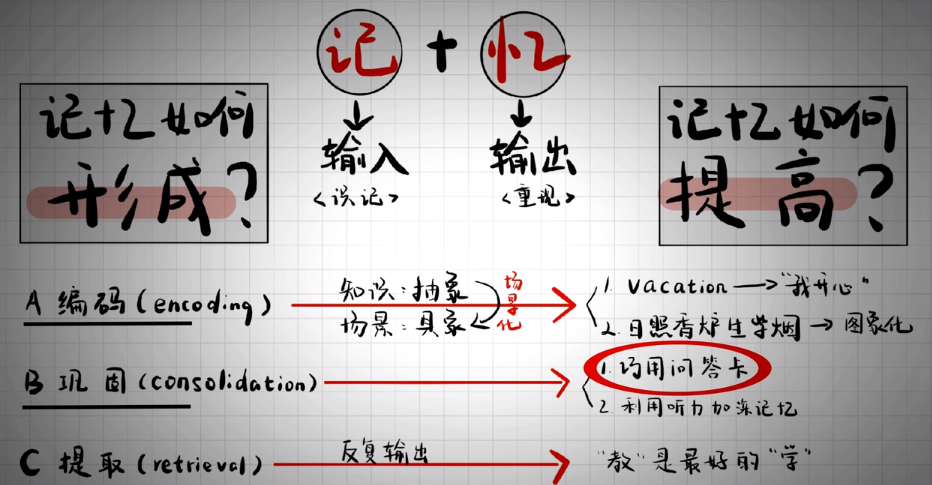 记 + 忆
记忆如何
形成?
输入
<识记>
输出
<重现>
记忆如何
提高?
A 编码(encoding)
知识:抽象
场景:具象
场景化
1. vacation → "我开心"
2. 日照香炉生学烟 → 图象化
B 巩固(consolidation)
1. 巧用问答卡
2. 利用听力加深记忆
C 提取(retrieval)
反复输出
"教"是最好的"学"